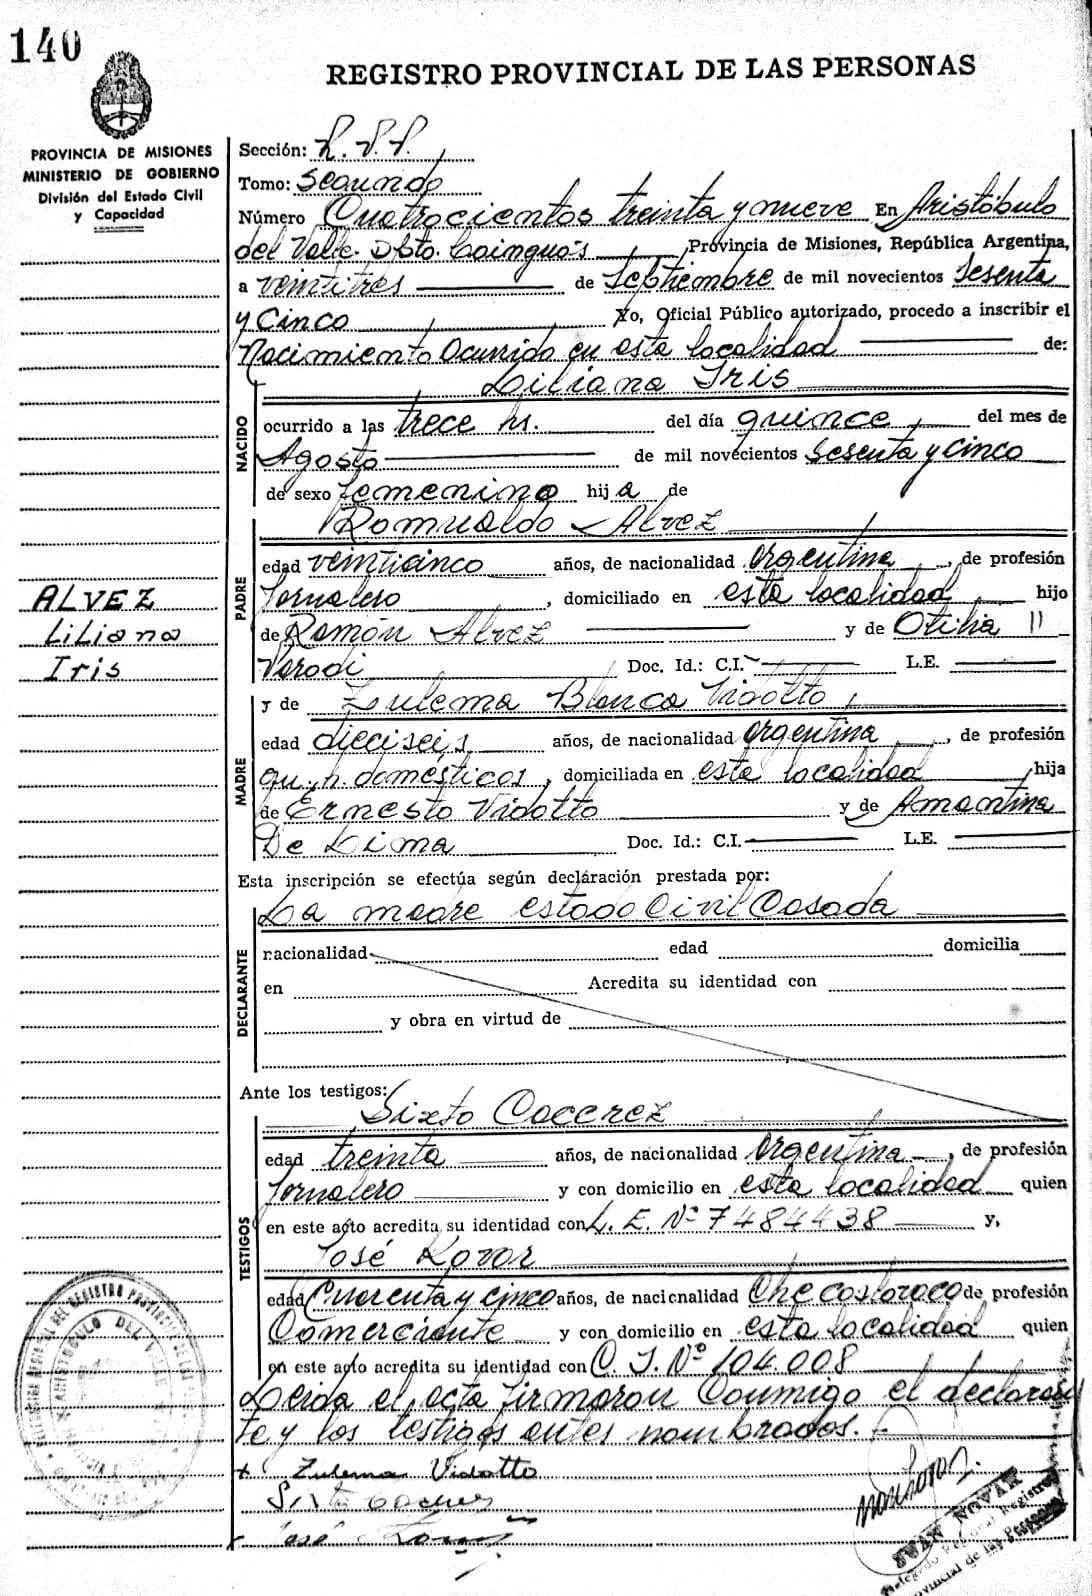 140
REGISTRO PROVINCIAL DE LAS PERSONAS
PROVINCIA DE MISIONES
MINISTERIO DE GOBIERNO
División del Estado Civil
y Capacidad
Sección:
Tomo: Segundo
Número Cuatrocientos treinta y nueve En Aristóbulo
del Valle. Dpto. Cainguás Provincia de Misiones, República Argentina,
a veintitres de Septiembre de mil novecientos Sesenta
y Cinco Yo, Oficial Público autorizado, procedo a inscribir el
Nacimiento Ocurrido en esta localidad de:
Liliana Iris
NACIDO
ocurrido a las trece hs. del día quince del mes de
Agosto de mil novecientos Sesenta y Cinco
de sexo femenino hija de
Romualdo Alvez
PADRE
edad veinticinco años, de nacionalidad argentina, de profesión
Jornalero, domiciliado en esta localidad hijo
de Ramón Alvez y de Otilia
Varodi Doc. Id.: C.I. L.E.
ALVEZ
Liliana
Iris
MADRE
y de Zulema Blanca Vidotto,
edad dieciseis, años, de nacionalidad argentina, de profesión
qu. h. domésticos, domiciliada en esta localidad, hija
de Ernesto Vidotto y de Amantina
De Lima Doc. Id.: C.I. L.E.
Esta inscripción se efectúa según declaración prestada por:
La madre estado Civil Casada
DECLARANTE
nacionalidad edad domicilia
en Acredita su identidad con
y obra en virtud de
Ante los testigos:
Sixto Cacerez
TESTIGOS
edad treinta años, de nacionalidad Argentina, de profesión
Jornalero y con domicilio en esta localidad quien
en este acto acredita su identidad con L. E. Nº 7484438 y,
José Kovar
edad Cuarenta y cinco años, de nacionalidad Checoslovaco de profesión
Comerciante y con domicilio en esta localidad quien
en este acto acredita su identidad con C. I. Nº 104.008
Leida el acta firmaron Conmigo el declaran
te y los testigos antes nombrados.
+ Zulema Vidotto
Sixto
José
JUAN NOVAR
Delegado Regional Registro
Provincial de las Personas